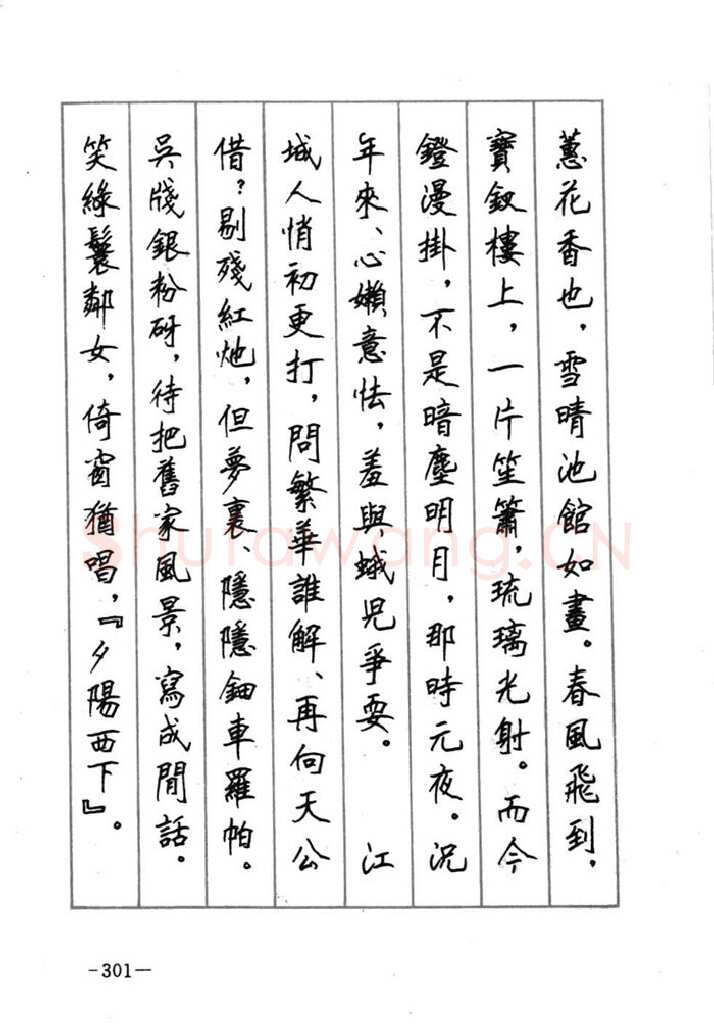 蕙花香也，雪晴池館如畫。春風飛到，
寶釵樓上，一片笙簫，琉璃光射。而今
鐙漫掛，不是暗塵明月，那時元夜。況
年來、心嬾意怯，羞與蛾兒爭耍。　江
城人悄初更打，問繁華誰解、再向天公
借？剔殘紅灺，但夢裏、隱隱鈿車羅帕。
吳牋銀粉砑，待把舊家風景，寫成閒話。
笑綠鬟鄰女，倚窗猶唱，『夕陽西下』。
-301-
Shufawang.CN